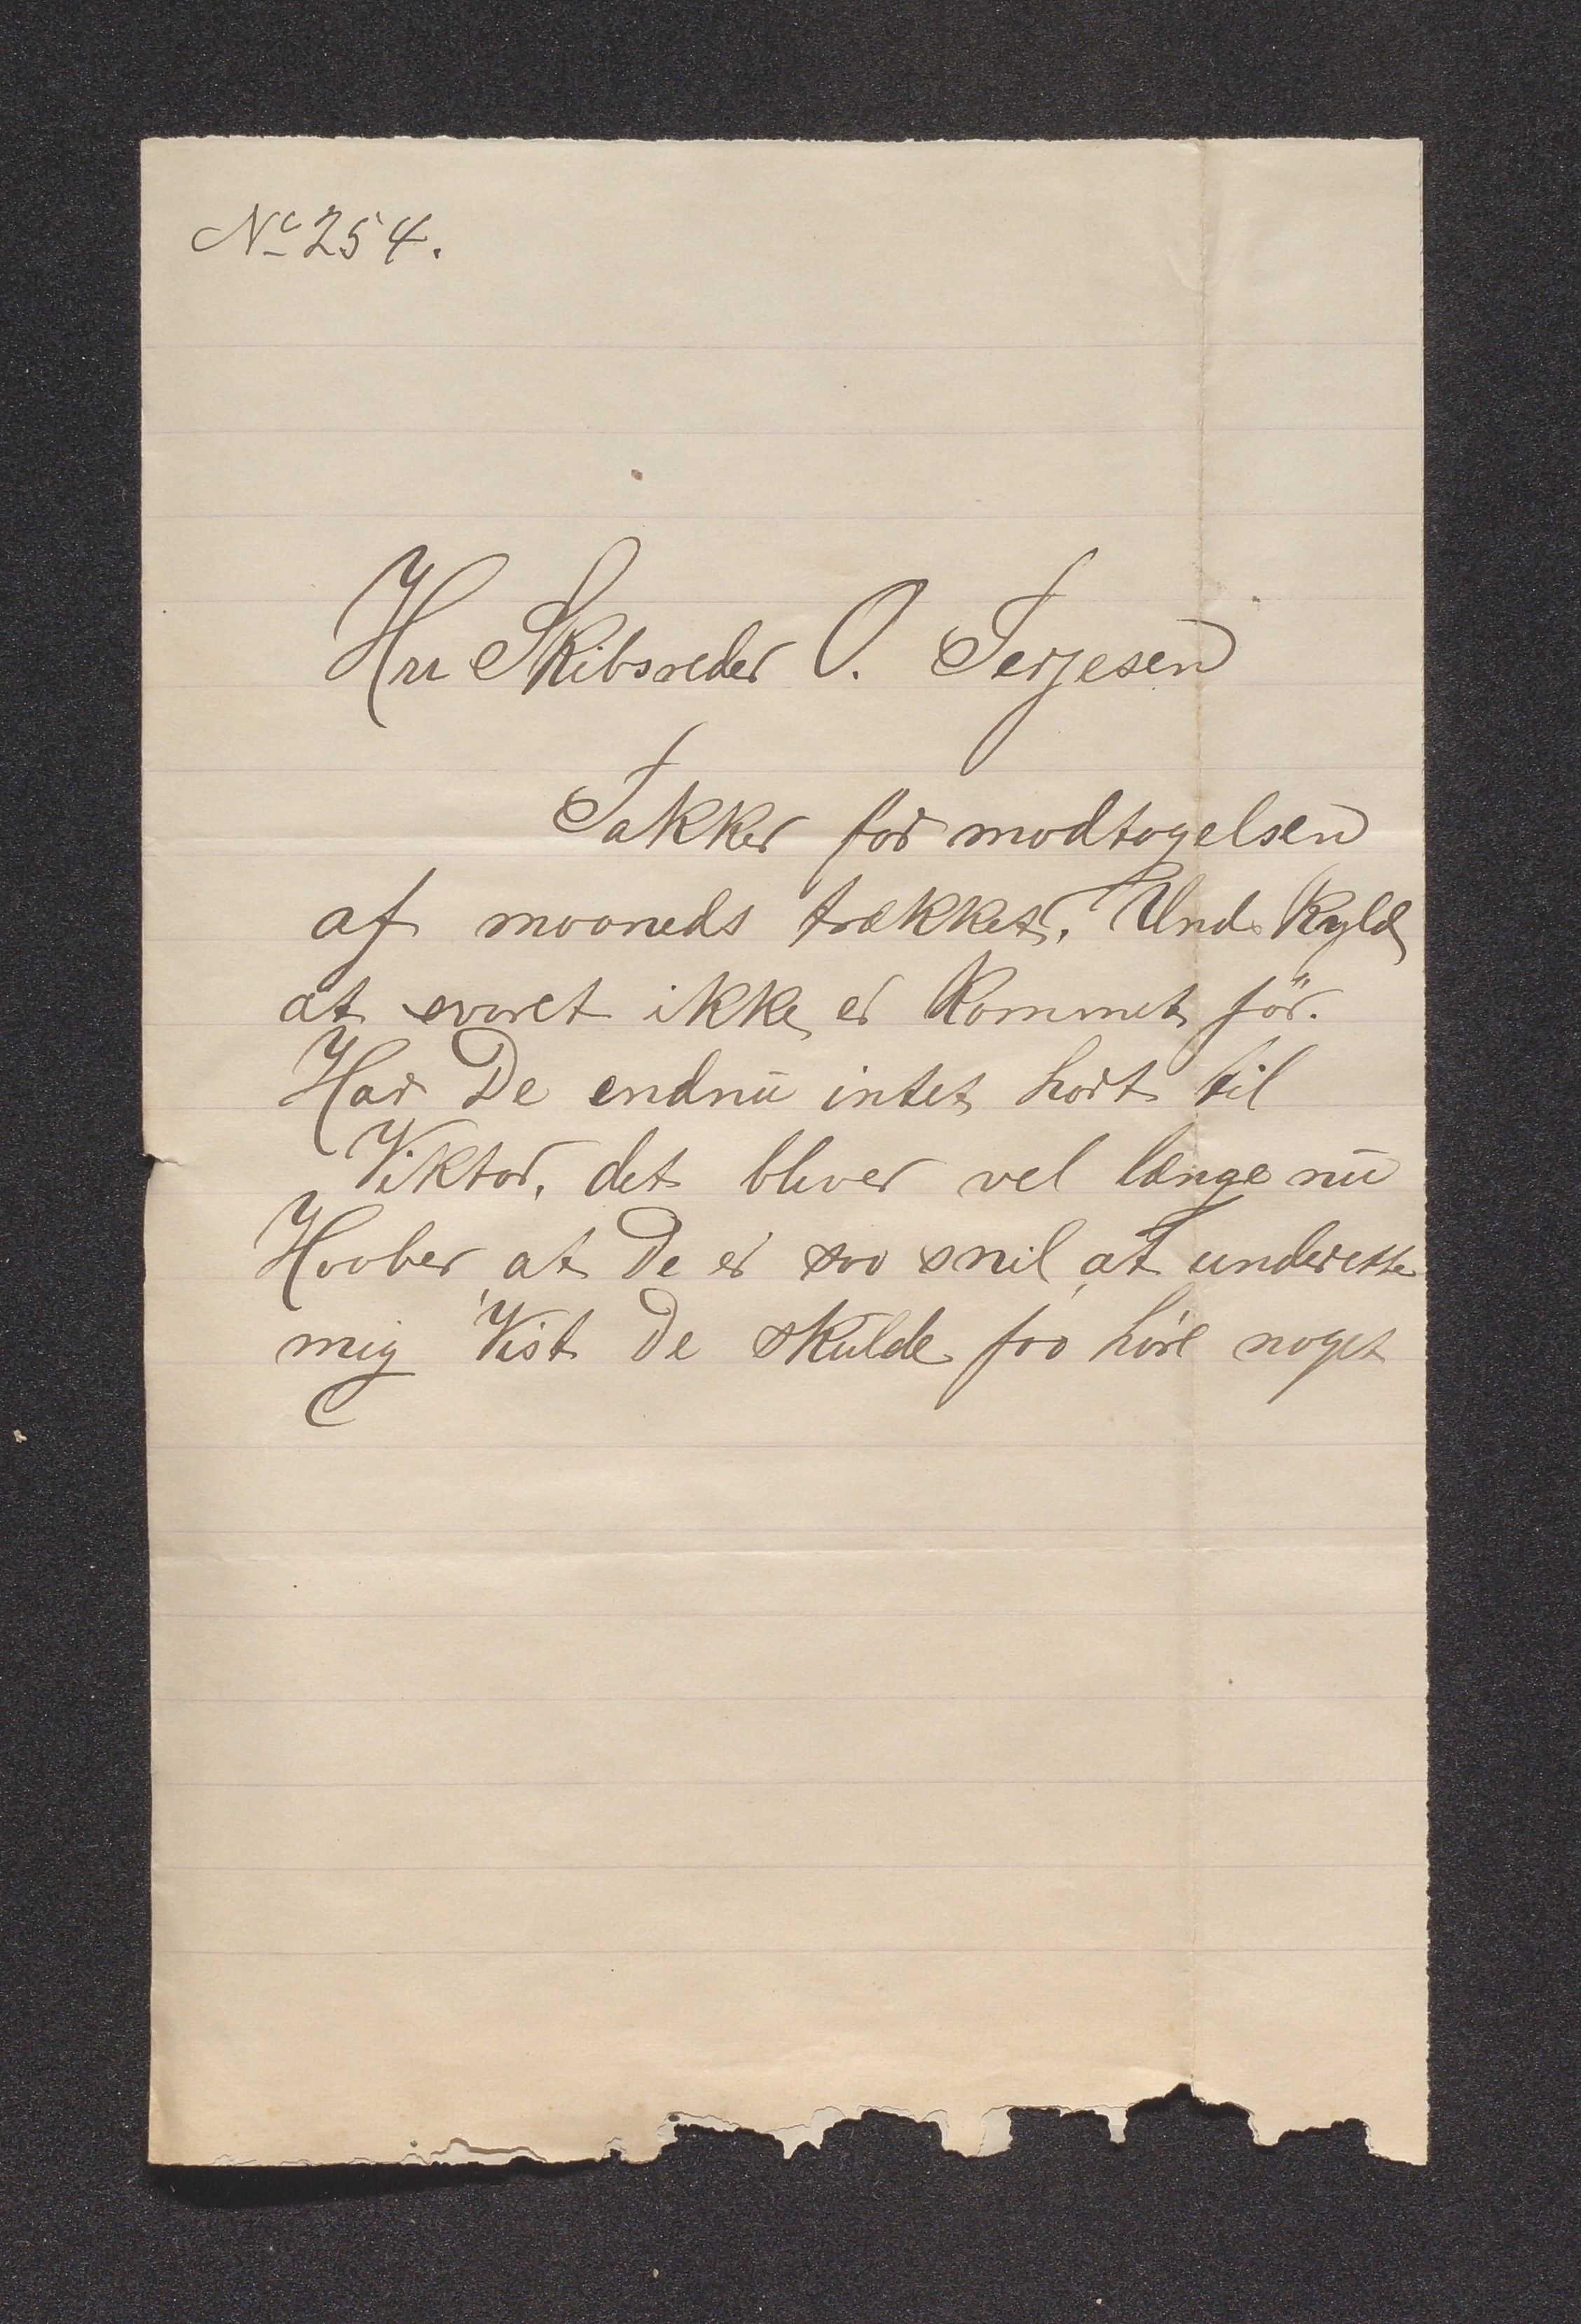 No 254.
Hrr Skibsreder O. Terjesen
Takker for modtagelsen
af maaneds trækket. Undskyld
at svaret ikke er kommet för.
Har De endnu intet hørt til
Viktor, det bliver vel længe nu
Haaber at De er saa snil at underette
mig Vist De skulde faa höre noget